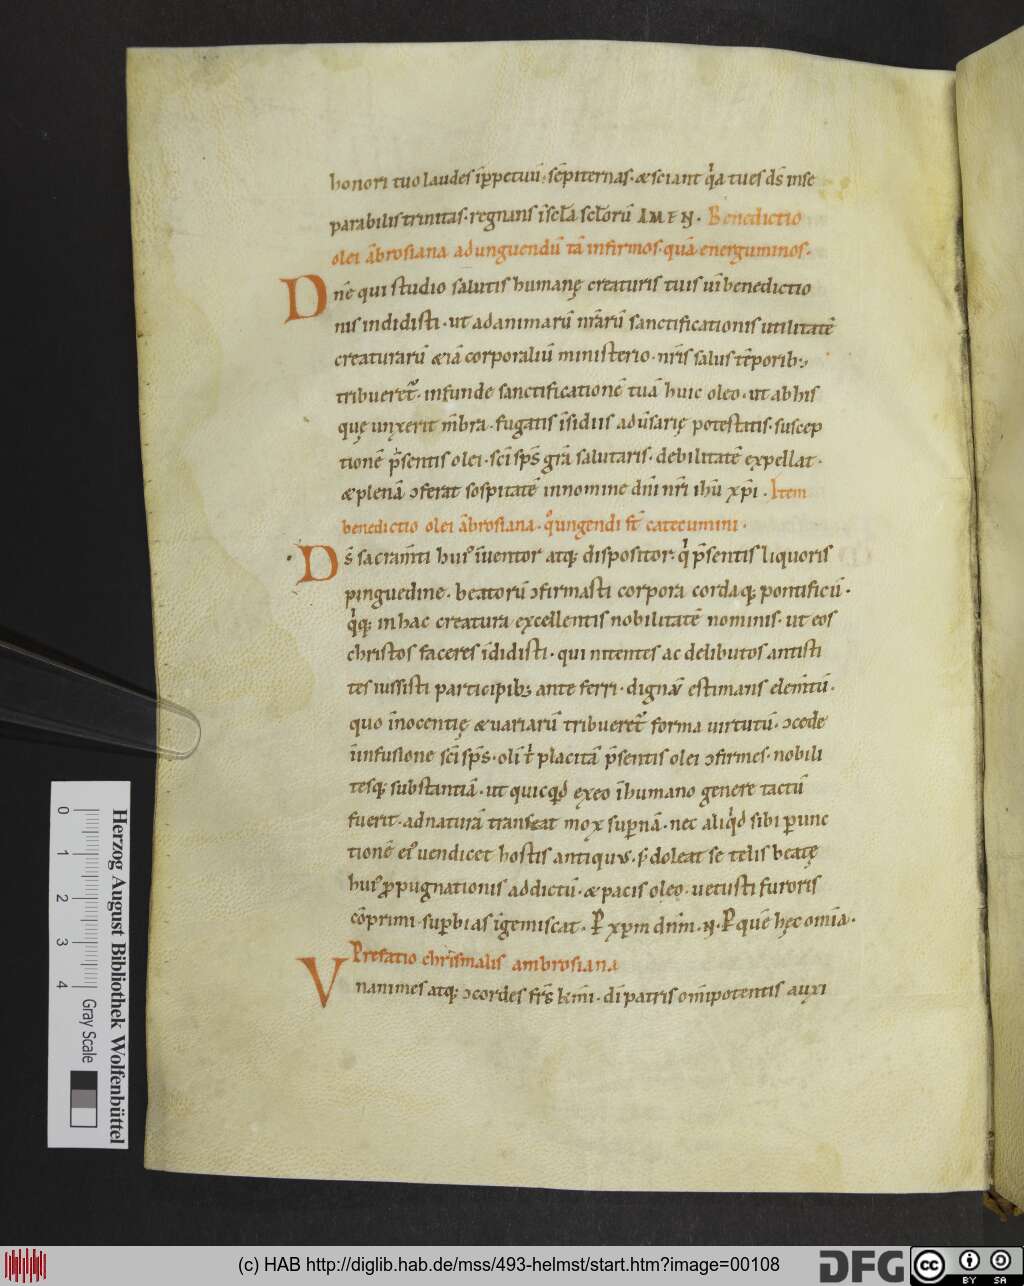 honori tuo laudes īppetuū. sēpiternas. & sciant q̄a tu es ds̄ inse
parabilis trinitas. regnans īscl̄a scl̄orū AMEN. Benedictio
olei ābrosiana ad unguendū tā infirmos. quā energuminos.
Dn̄e qui studio salutis humanę creaturis tuis uī benedictio
nis indidisti. ut ad animarū nr̄arū sanctificationis utilitatē
creaturarū &iā corporaliū ministerio. nr̄is salus tēporib;
tribueret᷒. infunde sanctificationē tuā huic oleo. ut ab his
quę unxerit m̄bra. fugatis īsidiis adūsarię potestatis. suscep
tionē p̄sentis olei. sc̄i sp̄s gr̄a salutaris. debilitatē expellat.
& plenā ↄferat sospitatē in nomine dn̄i nr̄i ih̄u xp̄i. Item
benedictio olei ābrosiana. q̊ ungendi st̄ catecumini.
Ds̄ sacram̄ti huiꝰ īuentor atq; dispositor. q̇ p̄sentis liquoris
pinguedine. beatorū ↄfirmasti corpora cordaq; pontificū.
q̇q; in hac creatura excellentis nobilitatē nominis. ut eos
christos faceres īdidisti. qui nitentes ac delibutos antisti
tes iussisti participib; ante ferri. dignaꝝ estimans elem̄tū.
quo īnocentię & uariarū tribueret᷒ forma uirtutū. ↄcede
īinfusione sc̄i sp̄s. olī t̄ placitā p̄sentis olei ↄfirmes. nobili
tesq; substantiā. ut quicqd̄ ex eo īhumano genere tactū
fuerit. ad naturā transeat mox supnā. nec aliq̇d sibi p̄ unc
tionē eiꝰ uendicet hostis antiquus. s; doleat se telis beatę
huiꝰ ꝓpugnationis addictū. & pacis oleo. uetusti furoris
cōprimi supbias īgemiscat. P xp̄m dn̄m. N. P quē hęc om̄ia.
Prefatio chrismalis ambrosiana
Vnanimes atq; ↄcordes fr̄s km̄i. dī patris om̄ipotentis auxi
Herzog August Bibliothek Wolfenbüttel
0 1 2 3 4 Gray Scale
(c) HAB http://diglib.hab.de/mss/493-helmst/start.htm?image=00108
DFG
cc BY SA